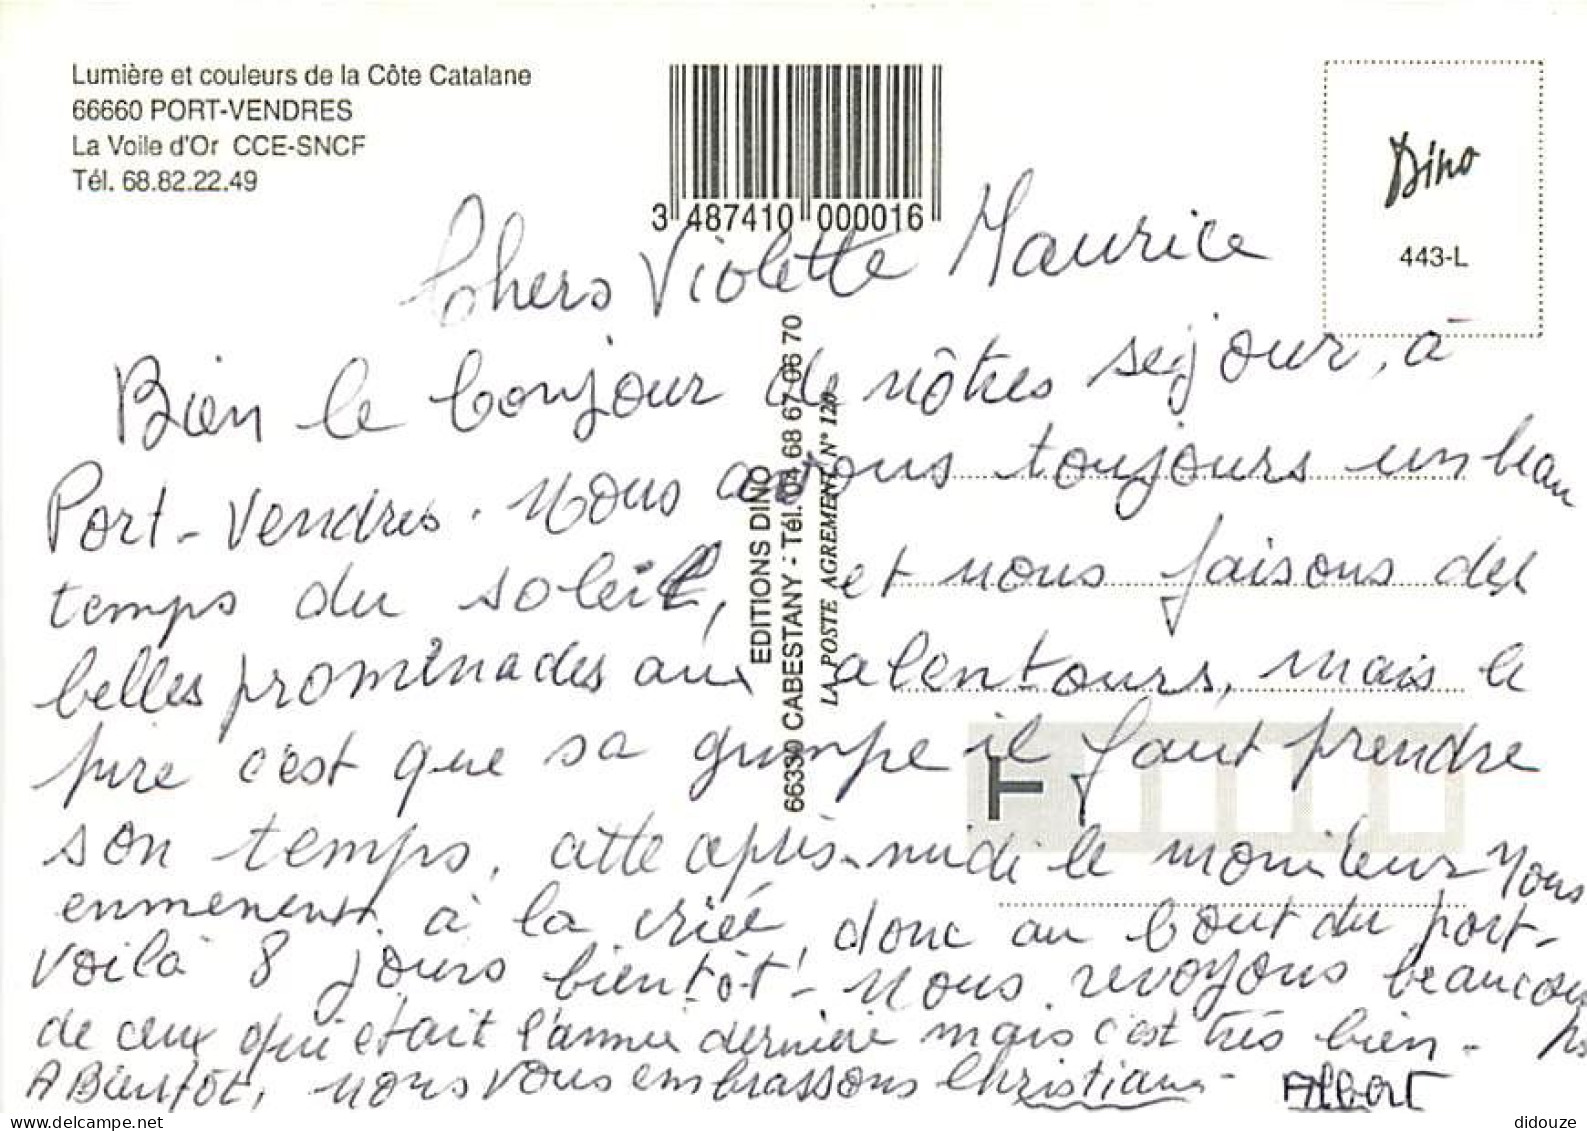 Lumière et couleurs de la Côte Catalane
66660 PORT-VENDRES
La Voile d'Or CCE-SNCF
Tél. 68.82.22.49
3 487410 000016
Dino
443-L
EDITIONS DINO
66330 CABESTANY - Tél. 04 68 67 06 70
LA POSTE AGREMENT N° 120
Chers Violette Maurice
Bien le bonjour de nôtres séjour, à
Port-Vendres. Nous avons toujours un beau
temps du soleil, et nous faisons des
belles promenades aux alentours, mais le
pire c'est que sa grimpe il faut prendre
son temps, cette après-midi le moniteur nous
emmenent à la criée, donc au bout du port-
voilà 8 jours bientôt! - Nous revoyons beaucou
de ceux qui était l'année dernière mais c'est très bien -
A Bientôt, nous vous embrassons Christiane - Albert
T
didouze